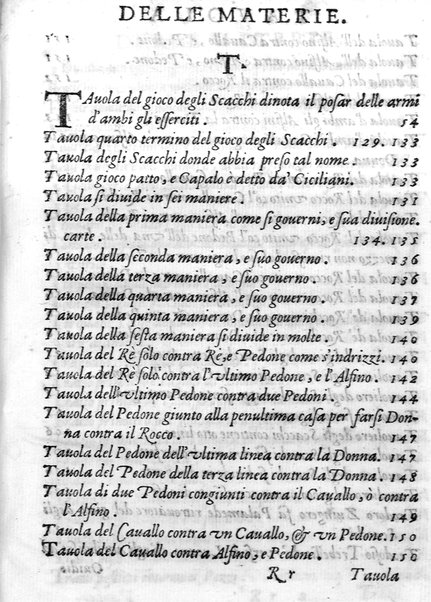 DELLE MATERIE.
T.
TAuola del gioco degli Scacchi dinota il posar delle armi
d'ambi gli esserciti. 54
Tauola quarto termino del gioco degli Scacchi. 129. 133
Tauola degli Scacchi donde abbia preso tal nome. 133
Tauola gioco patto, e Capalo è detto da' Ciciliani. 133
Tauola si diuide in sei maniere. 131
Tauola della prima maniera come si gouerni, e sua diuisione.
carte. 134. 135
Tauola della seconda maniera, e suo gouerno. 136
Tauola della terza maniera, e suo gouerno. 136
Tauola della quarta maniera, e suo gouerno. 137
Tauola della quinta maniera, e suo gouerno. 139
Tauola della sesta maniera si diuide in molte. 140
Tauola del Rè solo contra Re, e Pedone come s'indrizzi. 140
Tauola del Rè solo contra l'vltimo Pedone, e l'Alfino. 142
Tauola dell'vltimo Pedone contra due Pedoni. 144
Tauola del Pedone giunto alla penultima casa per farsi Don-
na contra il Rocco. 147
Tauola del Pedone dell'vltima linea contra la Donna. 147
Tauola del Pedone della terza linea contra la Donna. 148
Tauola di due Pedoni congiunti contra il Cauallo, ò contra
l'Alfino. 149
Tauola del Cauallo contra vn Cauallo, & vn Pedone. 150
Tauola del Cauallo contra Alfino, e Pedone. 150
R r Tauola